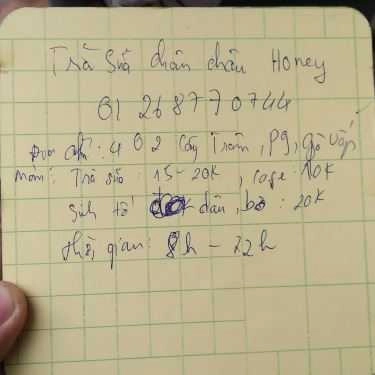 Trà sữa chân châu Honey
01268770744
Địa chỉ: 402 Cây Trâm, P9, gò vấp
Menu: Trà sữa: 15-20K, cafe: 10K
Sinh tố dâu, bơ: 20K
thời gian: 8h - 22h